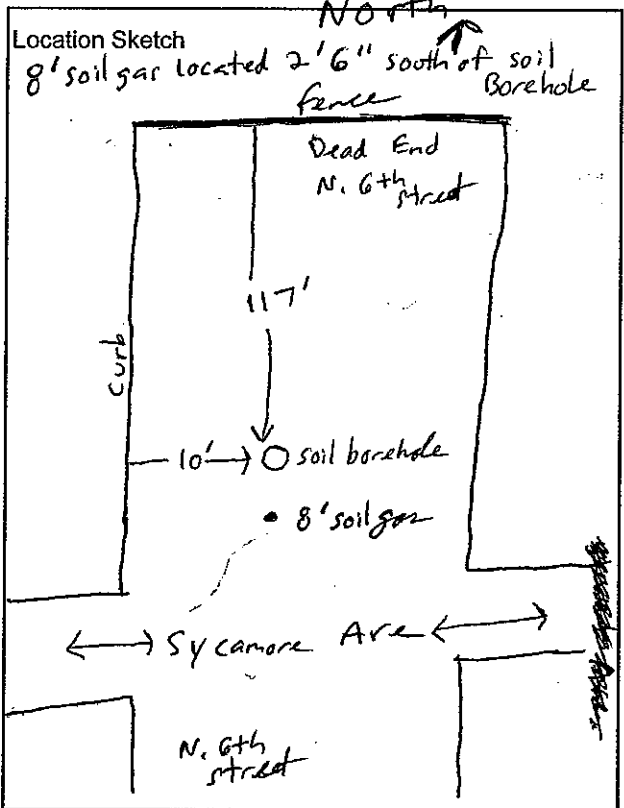 North
Location Sketch
8' soil gas located 2'6" south of soil
Borehole
fence
Dead End
N. 6th
street
117'
curb
10' soil borehole
8' soil gas
Sycamore Ave
N. 6th
street